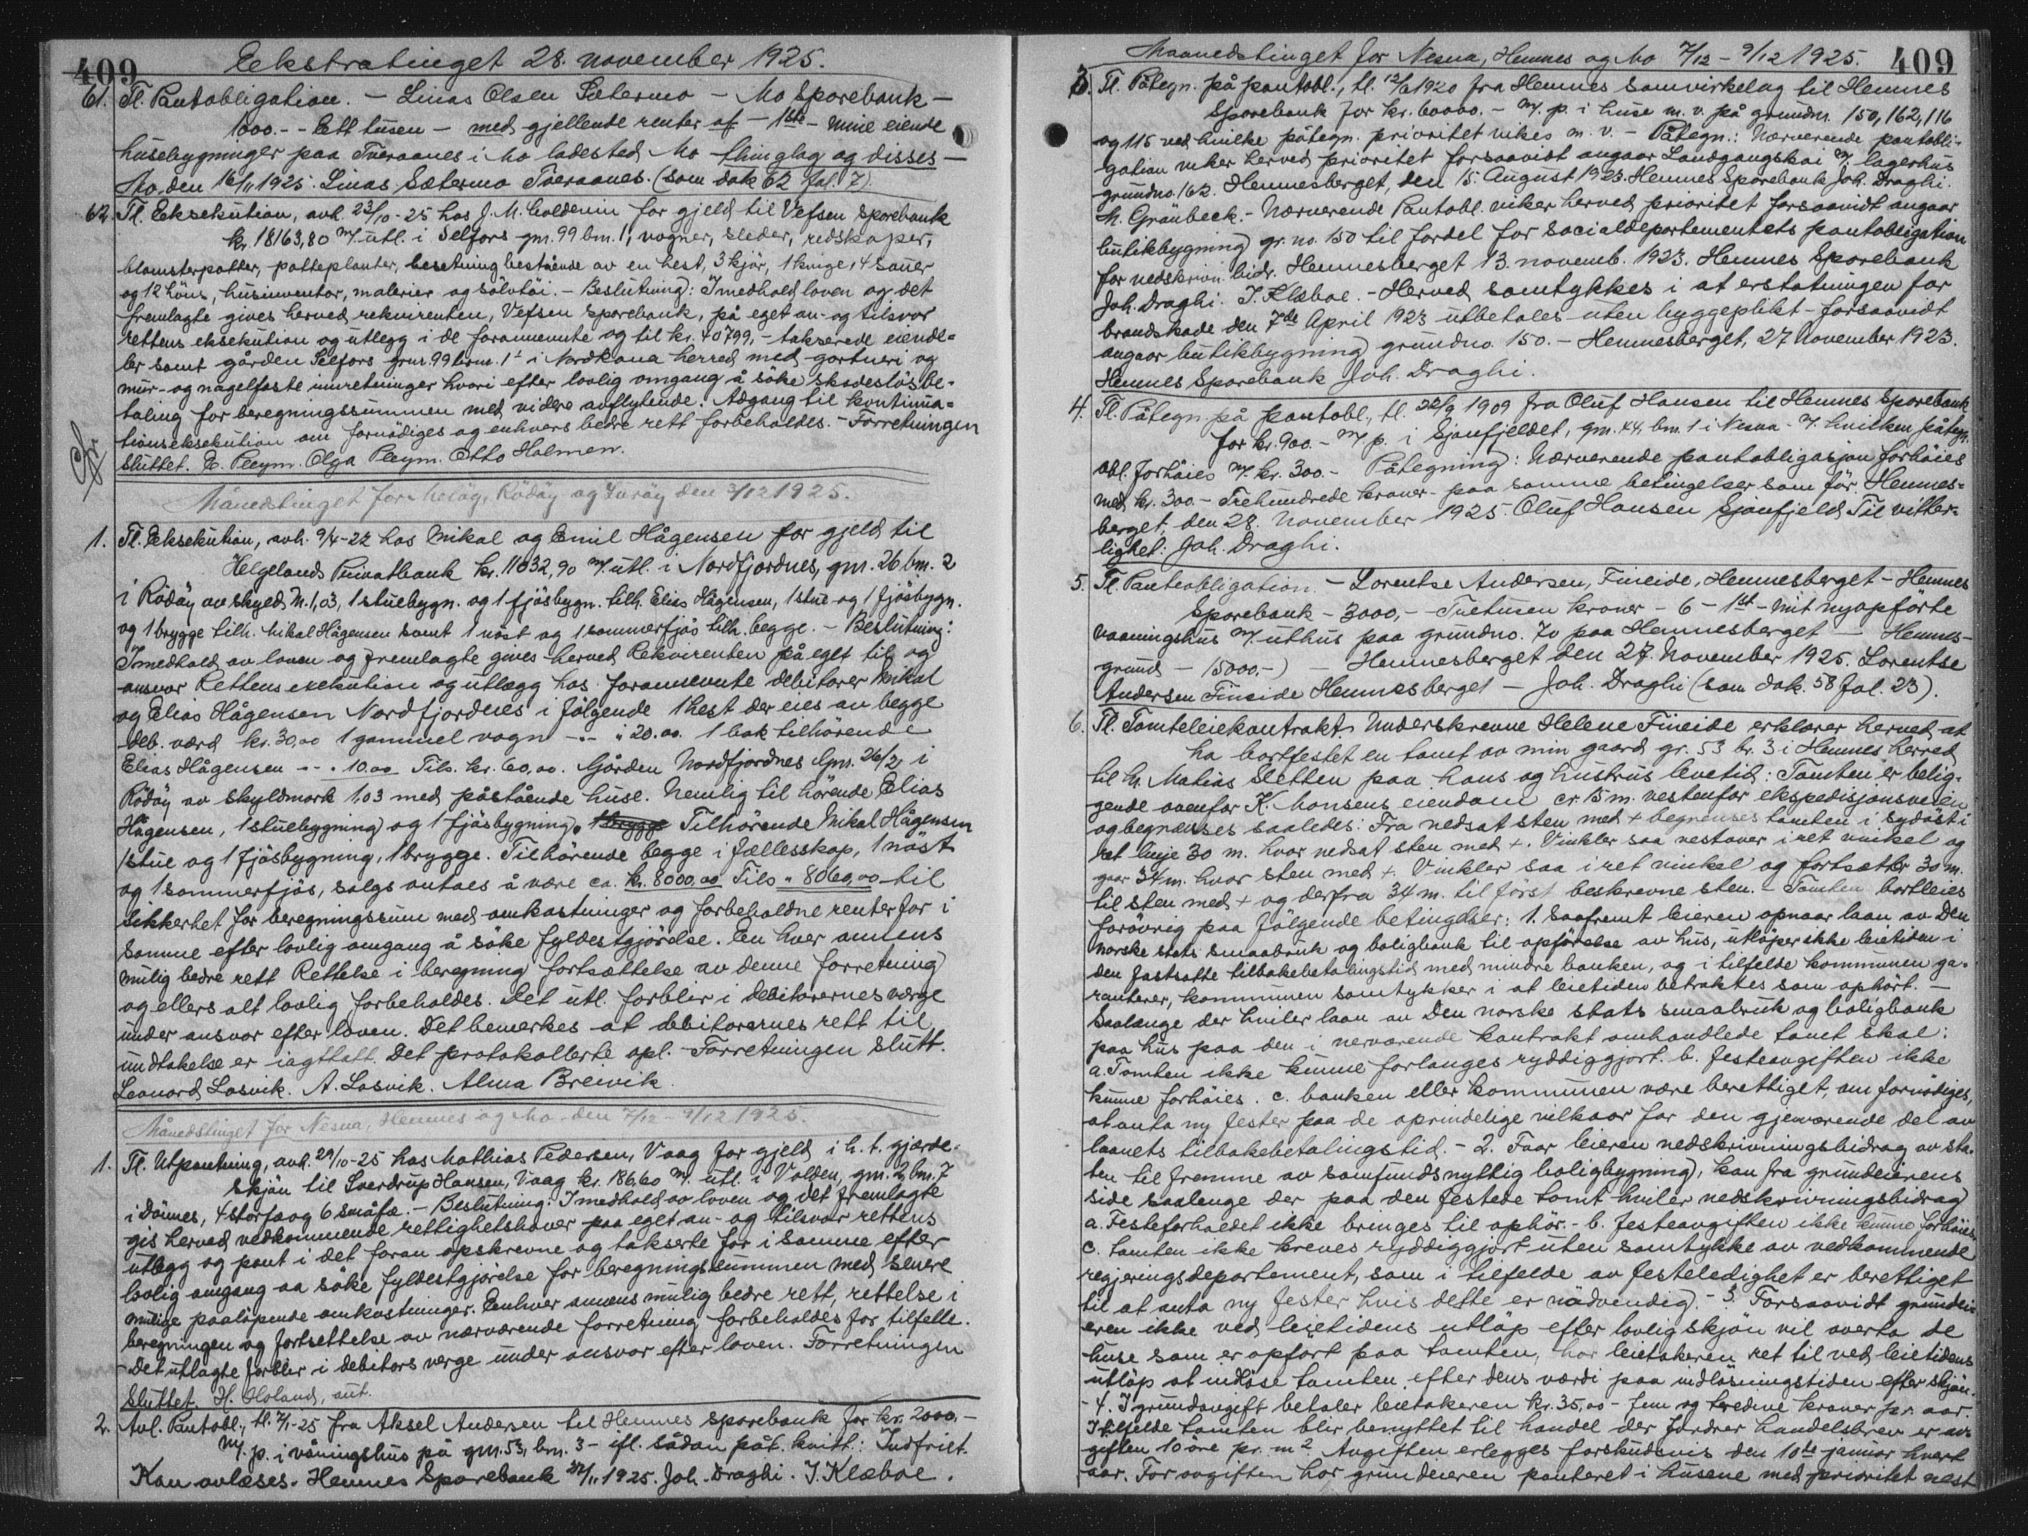 409
Ekstratinget 28. november 1925.
61. Tl. Pantobligation. - Linas Olsen Sætermo - Mo Sparebank -
1000.- - Ett tusen - med gjellende renter af - 1ste - mine eiende
husebygninger paa Tveraanes i Mo ladested Mo thinglag og disses -
Mo den 16/11 1925. Linas Sætermo Tveraanes. (som dok 62 fol. 7).
62. Tl. Eksekution, avh. 23/10-25 hos J. M. Coldevin for gjeld til Vefsen Sparebank
kr. 18163,80 m/utl. i Selfors gnr. 99 bnr. 1, vogner, sleder, redskaper,
blomsterpotter, potteplanter, besetning bestående av en hest, 3 kjør, 1 kvige, 4 sauer
og 12 höns, husinventar, malerier og sölvtöi. - Beslutning: I medhold loven og det
fremlagte gives herved rekvirenten, Vefsen sparebank, på eget an- og tilsvar
rettens eksekution og utlegg i de forannevnte og til kr. 40799,- takserede eiende-
ler samt gården Selfors gnr. 99 bnr. 1 i Nordrana herred med gartneri og
mur- og nagelfaste innretninger hvori efter lovlig omgang å söke skadeslösbe-
taling for beregningssummen med videre avflytende. Adgang til kontinua-
tionseksekution om fornödiges og enhvers bedre rett forbeholdes. - Forretningen
sluttet. E. Pleym. Olga Pleym. Otto Holmen.
Månedstinget for Melöy, Rödöy og Luröy den 3/12 1925.
1. Tl. Eksekution, avh. 9/4-22 hos Mikal og Emil Hågensen for gjeld til
Helgelands Privatbank kr. 11032,90 m/utl. i Nordfjordnes, gnr. 26 bnr. 2
i Rödöy av skyld M. 1,03, 1 stuebygn. og 1 fjösbygn. tilh. Elias Hågensen, 1 stue og 1 fjösbygn.
og 1 brygge tilh. Mikal Hågensen samt 1 nöst og 1 sommerfjös tilh. begge. - Beslutning:
I medhold av loven og fremlagte gives herved Rekvirenten på eget til og
ansvar Rettens exekution og utlægg hos forannevnte debitorer Mikal
og Elias Hågensen Nordfjordnes i fölgende 1 hest der eies av begge
deb. værd kr. 30,00 1 gammel vogn - - " 20.00. 1 bak tilhörende
Elias Hågensen - - " 10,00 Tils. kr. 60,00. Gården Nordfjordnes Gnr. 26/2, i
Rödöy av skyldmark 1,03 med påstående huse. Nemlig til hörende Elias
Hågensen, 1 stuebygning og 1 fjösbygning. 1 brygge Tilhörende Mikal Hågensen
1 stue og 1 fjösbygning, 1 brygge. Tilhörende begge i fællesskap, 1 nöst
og 1 sommerfjös, salgs antaes å være ca. kr. 8000,00 Tils " 8060,00 til
Sikkerhet for beregningssum med omkostninger og forbeholdne renter for i
samme efter lovlig omgang å söke fyldestgjörelse. En hver annens
mulig bedre rett Rettelse i beregning fortsættelse av denne forretning
og ellers alt lovlig forbeholdes. Det utl. forblir i debitorernes værge
under ansvar efter loven. Det bemerkes at debitorernes rett til
undtakelse er iagttatt. Det protokollerte opl. - Forretningen slutt.
Leonard Lasvik. A. Lasvik. Alma Breivik.
Månedstinget for Nesna, Hemnes og Mo den 7/12 - 9/12 1925.
1. Tl. Utpantning, avh. 29/10-25 hos Mathias Pedersen, Vaag for gjeld i h. t. gjærde-
skjön til Sverdrup Hansen, Vaag kr. 186.60 m/ utl. i Volden, gnr. 2, bnr. 7
i Dönnes, 4 storfæ og 6 småfæ. - Beslutning: I medhold av loven og det fremlagte
gis herved vedkommende rettighetshaver paa eget an- og tilsvar rettens
utlegg og pant i det foran opskrevne og takserte for i samme efter
lovlig omgang aa söke fyldestgjörelse for beregningssummen med senere
mulige paalöpende omkostninger. Enhver annens mulig bedre rett, rettelse i
beregningen og fortsettelse av nærværende forretning forbeholdes for tilfelle.
Det utlagte forblir i debitors verge under ansvar efter loven. Forretningen
sluttet. H. Holand, aut.
2. Avl. Pantobl., tl. 7/1-25 fra Aksel Andersen til Hemnes sparebank for kr. 2000,-
m/ p. i våningshus på gnr. 53, bnr. 3 - ifl. sådan påt. kvitt: Indfriet.
Kan avlæses. Hemnes Sparebank 27/11 1925. Joh. Draghi. J. Klæboe.
409
Maanedstinget for Nesna, Hemnes og Mo 7/12 - 9/12 1925.
3. Tl. Påtegn. på pantobl., tl. 12/6 1920 fra Hemnes samvirkelag til Hemnes
Sparebank for kr. 60000.- m/ p. i huse m. v. på grundnr. 150, 162, 116
og 115 ved hvilke påtegn. prioritet vikes m. v. - Påtegn.: Nærværende pantobli-
gation viker herved prioritet forsaavidt angaar Landgangskai m/ lagerhus
grundno. 162. Hemnesberget, den 15. August 1923. Hemnes Sparebank Joh. Draghi.
M. Grønbeck. - Nærværende Pantobl. viker herved prioritet forsaavidt angaar
butikbygning gr. no. 150 til fordel for socialdepartementets pantobligation
for nedskrivn. bidr. Hemnesberget 13. novemb. 1923. Hemnes Sparebank
Joh. Draghi. J. Klæboe. - Herved samtykkes i at erstatningen for
brandskade den 7de April 1923 utbetales uten byggeplikt - forsaavidt
angaar butikbygning grundno. 150. - Hemnesberget, 27 November 1923.
Hemnes Sparebank Joh. Draghi.
4. Tl. Påtegn. på pantobl., tl. 22/9 1909 fra Oluf Hansen til Hemnes Sparebank
for kr. 900.- m/ p. i Sjonfjeldet, gnr. 44, bnr. 1 i Nesna - v. hvilken påtegn.
obl. forhöies m/ kr. 300.- Påtegning: Nærverende pantobligasjon forhöies
med kr. 300.- Trehundrede kroner - paa samme betingelser som för. Hemnes-
berget den 28. November 1925 Oluf Hansen Sjonfjeld. Til vitter-
lighet: Joh. Draghi.
5. Tl. Panteobligation - Lorentse Andersen, Fineide, Hemnesberget - Hemnes
Sparebank - 3000,- - Tretusen kroner - 6 - 1st - Mit nyopförte
vaaningshus m/ uthus paa grundno. 70 paa Hemnesberget - Hemnes-
grund - 15000.-) - Hemnesberget den 27. November 1925. Lorentse
Andersen Fineide Hemnesberget - Joh. Draghi (som dok. 58 fol. 23).
6. Tl. Tomteleiekontrakt. Underskrevne Helene Fineide erklærer herved at
ha bortfestet en tomt av min gaard gr. 53 br. 3 i Hemnes herred
til hr. Matias Sletten paa hans og hustrus levetid: Tomten er belig-
gende ovenfor K. Monsens eiendom cr. 15 m. vestenfor ekspedisjonsveien
og begrænses saaledes: Fra nedsat sten med + begrenses tomten i sydöst i
ret linje 30 m. hvor nedsat sten med +. Vinkler saa vestover i ret vinkel og
gaar 34 m. hvor sten med +. Vinkler saa i ret vinkel og fortsætter 30 m.
til sten med + og derfra 34 m. til först beskrevne sten. - Tomten bortleies
forövrig paa fölgende betingelser: 1. Saafremt leieren opnaar laan av Den
norske stats smaabruk og boligbank til opförelse av hus, utlöper ikke leietiden i
den fastsatte tilbakebetalingstid med mindre banken, og i tilfelde kommunen ga-
ranterer, kommunen samtykker i at leietiden betraktes som ophört. -
Saalænge der hviler laan av Den norske stats smaabruk og boligbank
paa hus paa den i nerværende kontrakt omhandlede tomt skal:
a. Tomten ikke kunne forlanges ryddiggjort. b. festeavgiften ikke
kunne forhöies. c. banken eller kommunen være berettiget, om fornödiges,
at anta ny fester paa de oprindelige vilkaar for den gjenværende del av
laanets tilbakebetalingstid. - 2. Faar leieren nedskrivningsbidrag av sta-
ten til fremme av samfundsnyttig boligbygning, kan fra grundeierens
side saalenge der paa den festede tomt hviler nedskrivningsbidrag
a. Festeforholdet ikke bringes til ophör. - b. festeavgiften ikke kunne forhöies
c. tomten ikke kreves ryddiggjort uten samtykke av vedkommende
regjeringsdepartement, som i tilfelde av festeledighet er berettiget
til at anta ny fester hvis dette er nödvendig. - 3. Forsaavidt grundei-
eren ikke ved leietidens utlöp efter lovlig skjön vil overta de
huse som er opfört paa tomten, har leietakeren ret til ved leietidens
utlöp at indlöse tomten efter dens værdi paa indlösningstiden efter skjön.
- 4. I grundavgift betaler leietakeren kr. 35,00 - fem og tredive kroner pr. aar.
I tilfelde tomten blir benyttet til handel der fordrer handelsbrev er av-
giften 10 öre pr. m2. Avgiften erlegges forskudsvis den 10de januar hvert
aar. For avgiften har grundeieren panteret i husene med prioritet næst